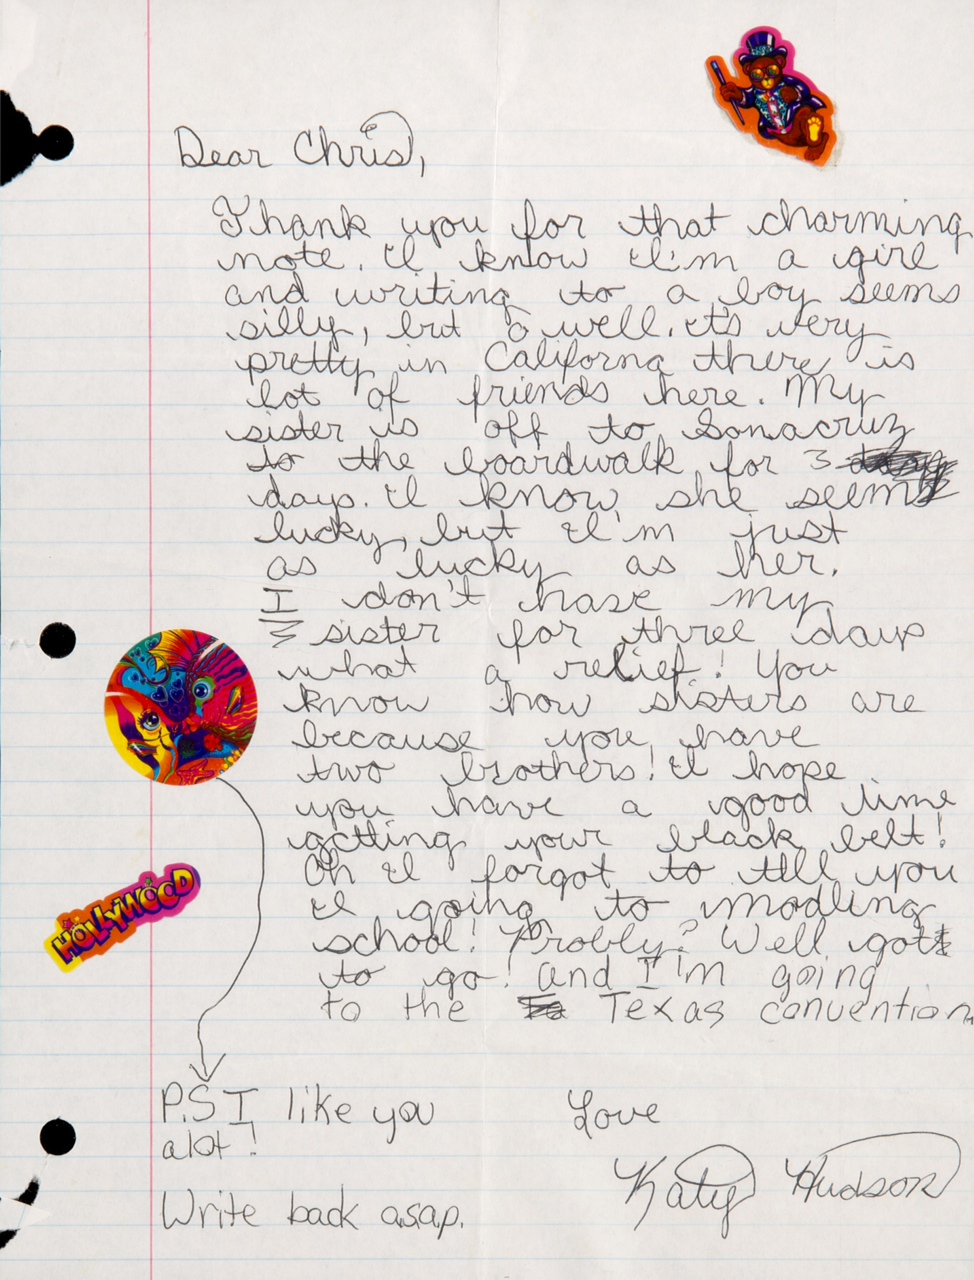 Dear Chris,
Thank you for that charming
note. I know I'm a girl
and writing to a boy seems
silly, but o well. it's very
pretty in Californa there is
lot of friends here. My
sister is off to Sonacruz
to the boardwalk for 3
days. I know she seems
lucky, but I'm just
as lucky as her.
I don't have my
sister for three days
what a relief! You
know how sisters are
because you have
two brothers! I hope
you have a good time
getting your black belt!
Oh I forgot to tell you
I going to modling
school! Probly? Well got
to go! and I'm going
to the Texas convention
HOLLYWOOD
P.S I like you
alot!
Love
Katy Hudson
Write back asap.